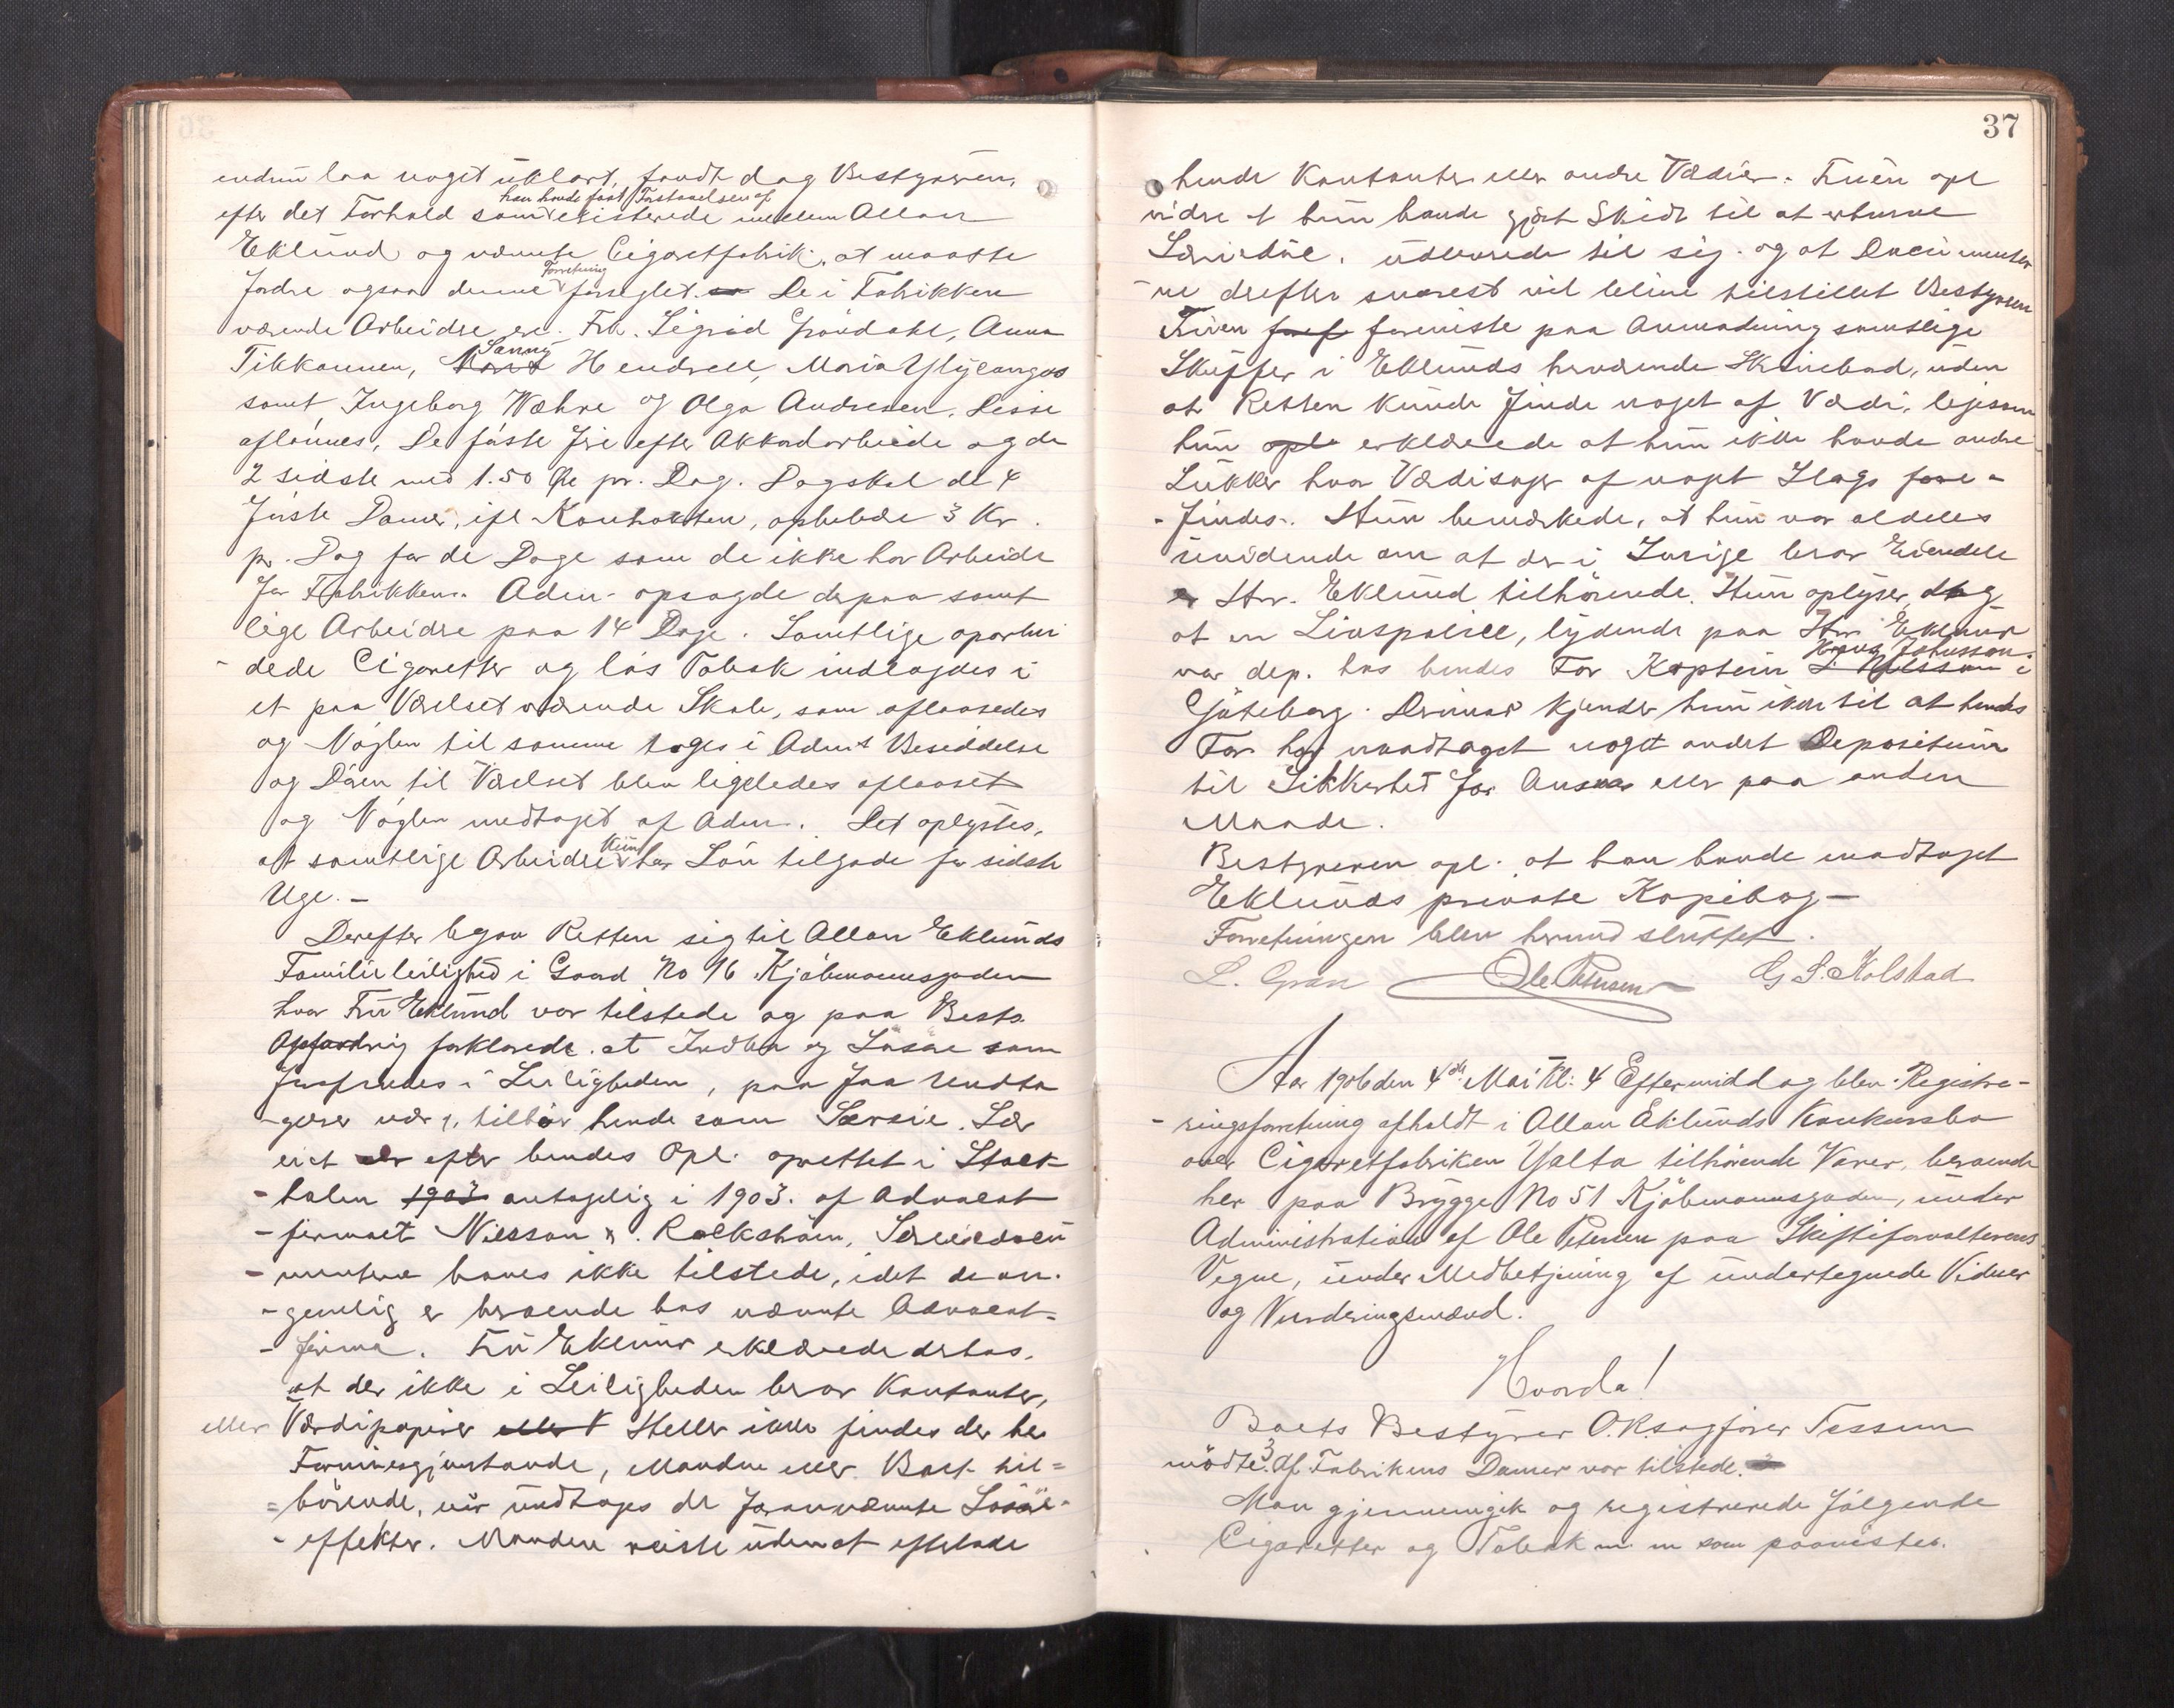 endnu laa noget uklart, fandt dog Bestyreren,
efter det Forhold som han havde faat Forstaaelsen af existerede mellem Allan
Eklund og nævnte Cigaretfabrik, at maatte
fordre ogsaa denne Forretning forseglet. De i Fabrikken
værende Arbeidre er: Frk. Sigrid Gröndahl, Anna
Tikkannen, Sanny Hendrell, Maria
samt Ingeborg Wæhre og Olga Andresen. Disse
aflönnes, De förste fire efter Akkordarbeide og de
2 sidste med 1.50 Öre pr. Dag. Dog skal de 4
förste Damer, ifl. Kontrakten, oppebære 3 Kr.
pr. Dag for de Dage som de ikke har Arbeide
for Fabrikken. Adm. opsagde derpaa samt
lige Arbeidre paa 14 Dage. Samtlige oparbei
dede Cigaretter og lös Tobak indlagdes i
et paa Værelset værende Skab, som aflaasedes
og Nöglen til samme toges i Adm's Besiddelse
og Dören til Værelset blev ligeledes aflaaset
og Nöglen medtaget af Adm. Det oplystes,
at samtlige Arbeidre kun har Lön tilgode for sidste
Uge. –
Derefter begav Retten sig til Allan Eklunds
Familieleilighed i Gaard No 16 Kjöbmannsgaden
hvor Fru Eklund var tilstede og paa Best's
Opfordring forklarede at Indbo og Lösöre som
forefindes i Leiligheden, paa faa Undta
-gelser nær, tilhör hende som Særeie. Sær
eiet er efter hendes Opl. oprettet i Stock-
-holm 1903 antagelig i 1903. af Advocat
-firmaet Nilsson &. Særeiedocu
-menterne haves ikke tilstede, idet de an-
-givelig er beroende hos nævnte Advocat=
-firma. Fru Eklund erklærede derhos,
at der ikke i Leiligheden beror Kontanter,
eller Værdipapirer eller Heller ikke findes der her
Formuesgjenstande, Manden eller Boet til=
=hörende, naar undtages de forannævnte Lösöre-
-effekter. Manden reiste uden at efterlade
37
hende Kontanter eller andre Værdier. Fruen opl
videre at hun havde gjort Skridt til at erhverve
Særeiet udleveret til sig og at Documenter
ne derefter snarest vil blive tilstillet Bestyreren
Fruen foref foreviste paa Anmodning samtlige
Skuffer i Eklunds herværende Skrivebord, uden
at Retten kunde finde noget af Værdi, ligesom
hun opl erklærede at hun ikke havde andre
Lukker hvor Værdisager af noget Slags fore-
-findes. Hun bemærkede, at hun var aldeles
uvidende om at der i Sverige beror Eiendele
Hr. Eklund tilhörende. Hun oplyser dog
at en Livspolice, lydende paa Hr. Eklund
var dep. hos hendes Far Kaptein L Nilsson Johnsson i
Göteborg. Derimod kjender hun ikke til at hendes
Far har modtaget noget andet Depositum
til Sikkerhed for Ansvar eller paa anden
Maade.
Bestyreren opl. at han havde modtaget
Eklunds private Kopibog –
Forretningen blev hermed sluttet.
L. Gran Ole Petersen G S. Kolstad
Aar 1906 den 4de Mai Kl: 4 Eftermiddag blev Registre-
-ringsforretning afholdt i Allan Eklunds Konkursbo
over Cigaretfabriken Yalta tilhörende Varer, beroende
her paa Brygge No 51 Kjöbmannsgaden, under
Administration af Ole Petersen paa Skifteforvalterens
Vegne, under Medbetjening af undertegnede Vidner
og Vurderingsmænd.
Hvorda!
Boets Bestyrer O.R.sagförer Tessem
mödte. 3 af Fabrikens Damer var tilstede.
Man gjennemgik og registrerede fölgende
Cigaretter og Tobak m m som paavistes.